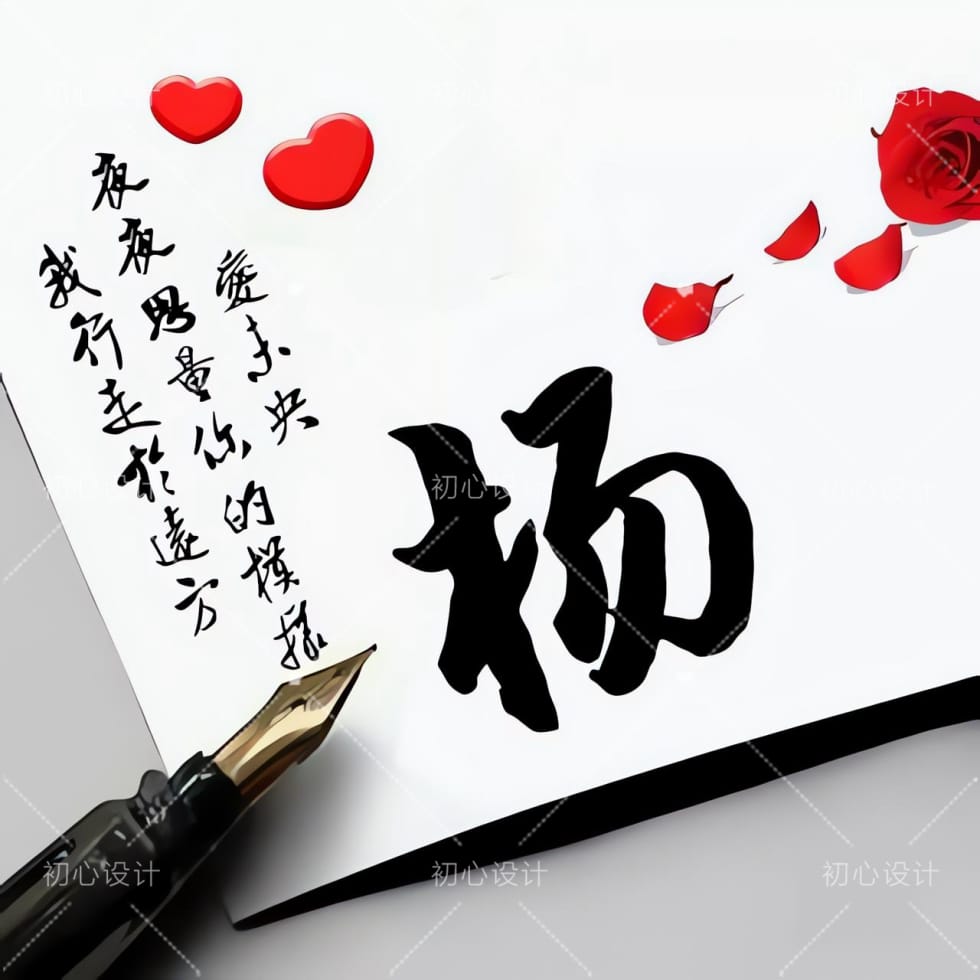 愛未央
夜夜思量你的模樣
我行走於遠方
杨
初心设计
初心设计
初心设计
初心设计
初心设计
初心设计
初心设计
初心设计
初心设计